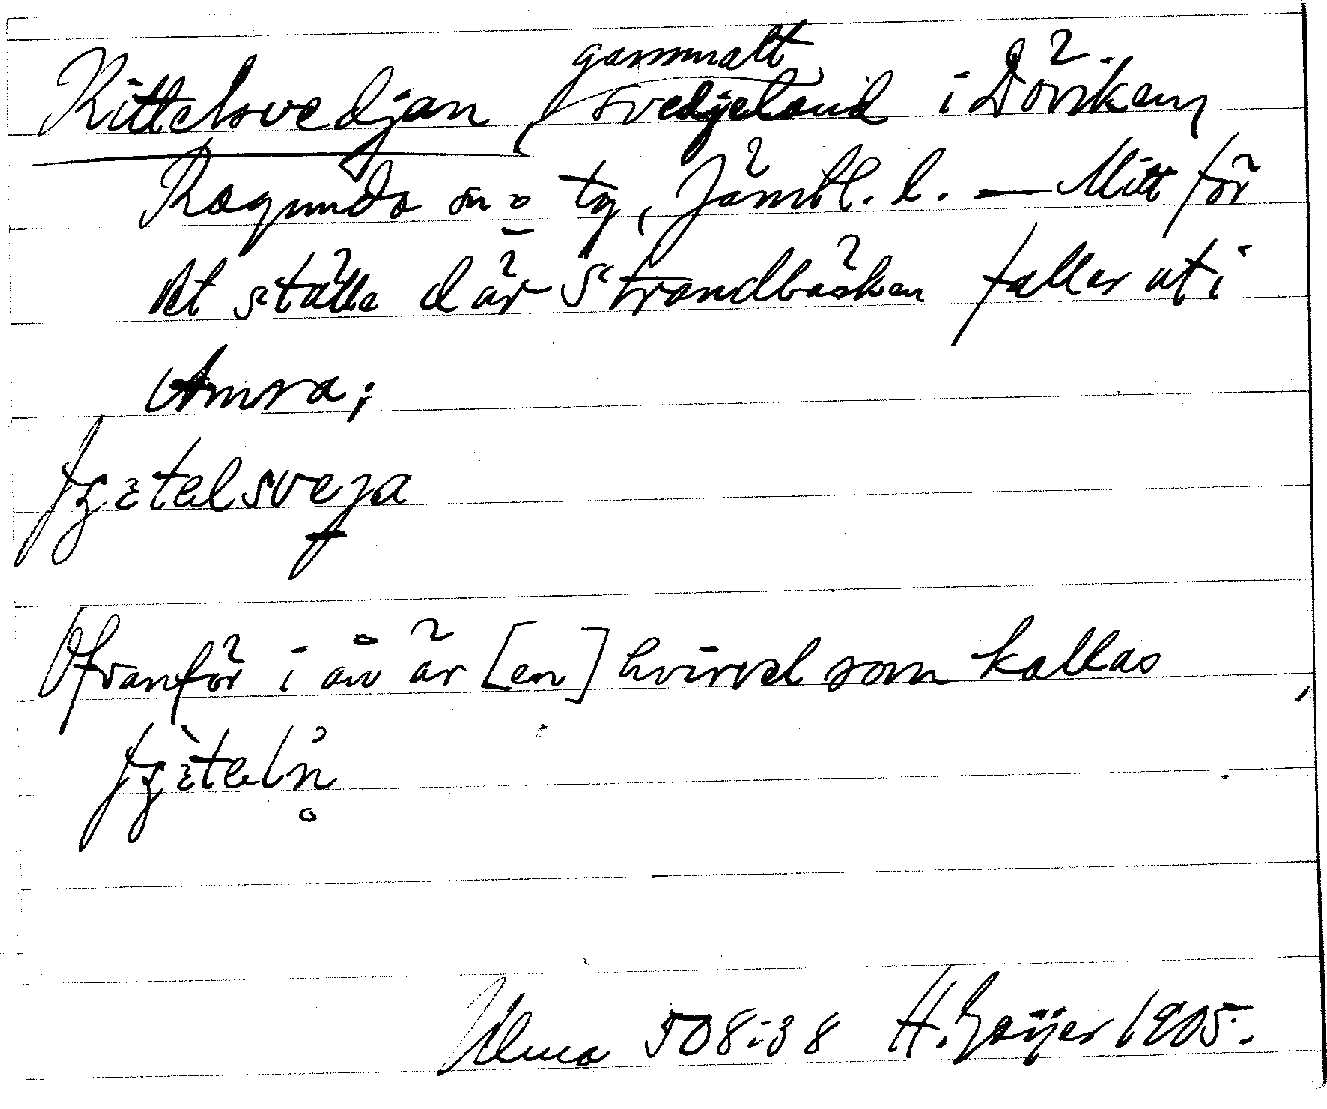 Kittelsvedjan, gammalt svedjeland i Döviken,
Ragunda sn o tg, Jämtl. l. — Mitt för
det ställe där Strandbäcken faller ut i
Amra;
Ofvanför i ån är [en] hvirvel som kallas
Ulma 508:38 H. Geijer 1905.